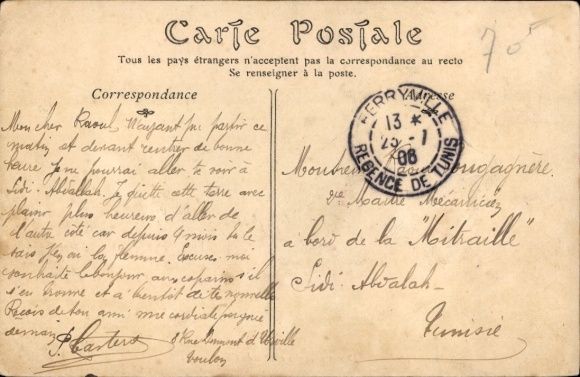 Carte Postale
Tous les pays étrangers n'acceptent pas la correspondance au recto
Se renseigner à la poste.
70
Correspondance
Adresse
FERRYVILLE
13 *
25-1
08
REGENCE DE TUNIS
Mon cher Raoul, N'ayant pu partir ce
matin et devant rentrer de bonne
heure Je ne pourrai aller te voir à
Sidi-Abdalah. Je quitte cette terre avec
plaisir plus heureux d'aller de
l'autre côté car depuis 9 mois tu le
sais
souhaite le bonjour aux copains s'il
s'en trouve et à bientôt de tes nouvelles
Reçois de ton ami une cordiale poignée
de main
P. Carters
8 Rue Dumont d'Urville
Toulon
Monsieur Raoul Fougagnère
2e Maître Mécanicien
à bord de la "Mitraille"
Sidi-Abdalah-
Tunisie